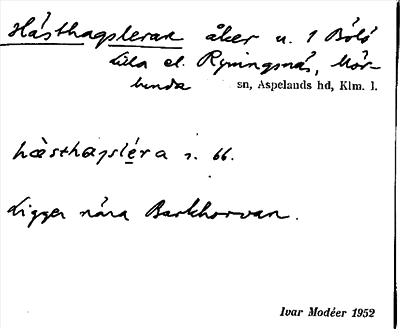 Hästhagsleran åker u. 1 Bölö
Lilla el. Ryningsnäs, Mör-
lunda sn, Aspelands hd, Klm. l.
hàsthagsléra s. 66.
Ligger nära Barkhorvan.
Ivar Modéer 1952